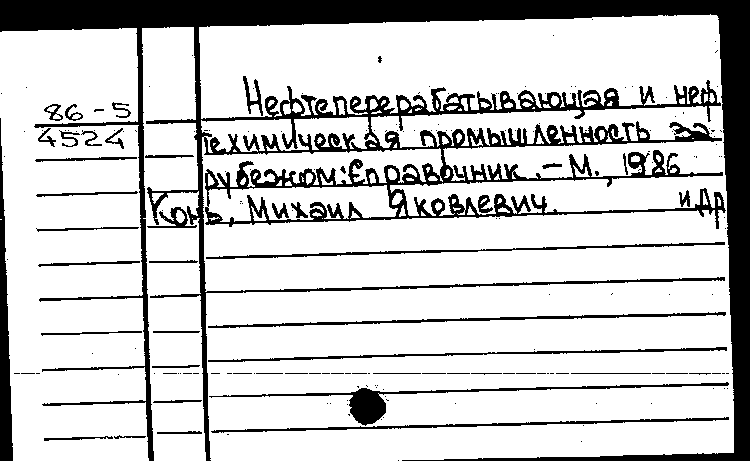 86-5 Нефтеперерабатывающая и неф
4524 техимическая промышленность за
рубежом: Справочник. – М., 1986.
Конь, Михаил Яковлевич. и др